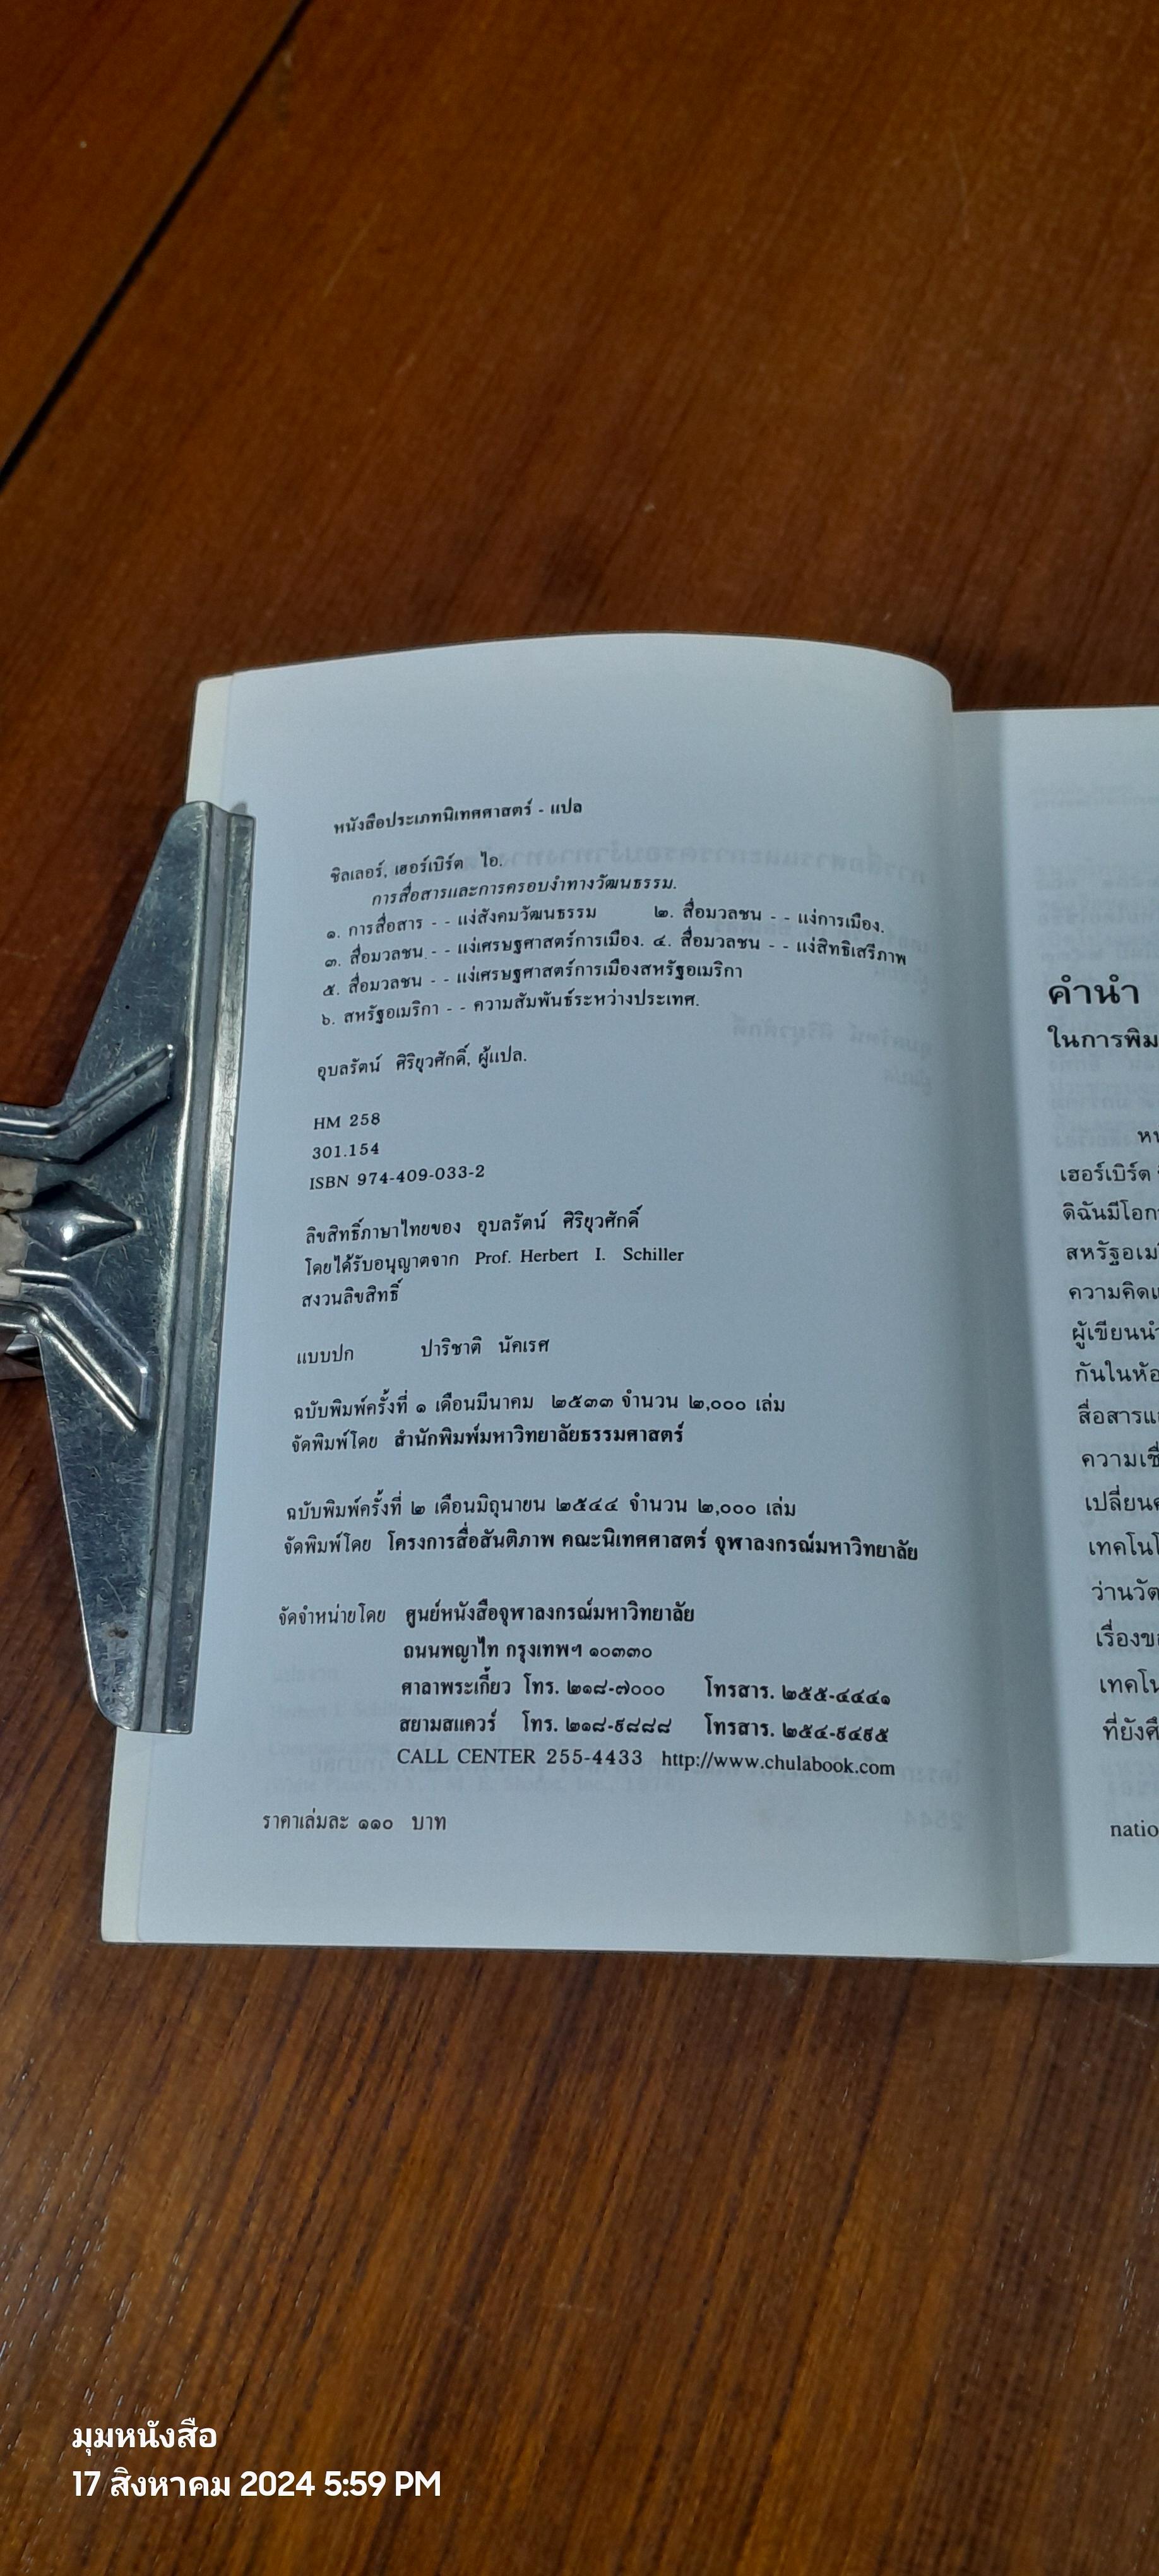 หนังสือประเภทนิเทศศาสตร์ - แปล
ชิลเลอร์, เฮอร์เบิร์ต ไอ.
การสื่อสารและการครอบงำทางวัฒนธรรม.
๑. การสื่อสาร - - แง่สังคมวัฒนธรรม ๒. สื่อมวลชน - - แง่การเมือง.
๓. สื่อมวลชน - - แง่เศรษฐศาสตร์การเมือง. ๔. สื่อมวลชน - - แง่สิทธิเสรีภาพ
๕. สื่อมวลชน - - แง่เศรษฐศาสตร์การเมืองสหรัฐอเมริกา
๖. สหรัฐอเมริกา - - ความสัมพันธ์ระหว่างประเทศ.
อุบลรัตน์ ศิริยุวศักดิ์, ผู้แปล.
HM 258
301.154
ISBN 974-409-033-2
ลิขสิทธิ์ภาษาไทยของ อุบลรัตน์ ศิริยุวศักดิ์
โดยได้รับอนุญาตจาก Prof. Herbert I. Schiller
สงวนลิขสิทธิ์
แบบปก ปาริชาติ นัคเรศ
ฉบับพิมพ์ครั้งที่ ๑ เดือนมีนาคม ๒๕๓๓ จำนวน ๒,๐๐๐ เล่ม
จัดพิมพ์โดย สำนักพิมพ์มหาวิทยาลัยธรรมศาสตร์
ฉบับพิมพ์ครั้งที่ ๒ เดือนมิถุนายน ๒๕๔๔ จำนวน ๒,๐๐๐ เล่ม
จัดพิมพ์โดย โครงการสื่อสันติภาพ คณะนิเทศศาสตร์ จุฬาลงกรณ์มหาวิทยาลัย
จัดจำหน่ายโดย ศูนย์หนังสือจุฬาลงกรณ์มหาวิทยาลัย
ถนนพญาไท กรุงเทพฯ ๑๐๓๓๐
ศาลาพระเกี้ยว โทร. ๒๑๘-๗๐๐๐ โทรสาร. ๒๕๕-๔๔๔๑
สยามสแควร์ โทร. ๒๑๘-๙๘๘๘ โทรสาร. ๒๕๔-๙๔๙๕
CALL CENTER 255-4433 http://www.chulabook.com
ราคาเล่มละ ๑๑๐ บาท
คำนำ
ในการพิม
หน
เฮอร์เบิร์ต
ดิฉันมีโอก
สหรัฐอเม
ความคิดแ
ผู้เขียนนำ
กันในหัอ
สื่อสารแ
ความเชื่
เปลี่ยน
เทคโนโ
ว่านวัต
เรื่องขอ
เทคโน
ที่ยังศึ
natio
มุมหนังสือ
17 สิงหาคม 2024 5:59 PM